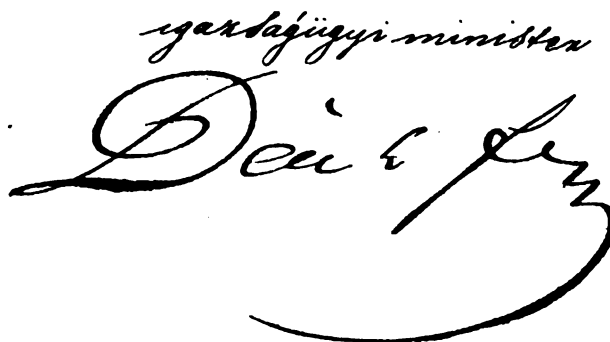 igazságügyi minister
Deák